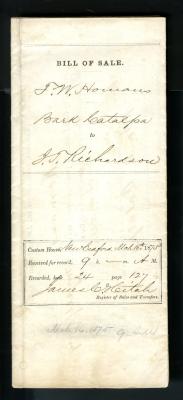 BILL OF SALE.
F. W. Homans
Bark Catalpa
to
J. T. Richardson
Custom House, New Bedford Mch 16th 1875
Received for record, 9 A M.
Recorded, book 24 page 127
James C Hitch
Register of Sales and Transfers.
Mch 16. 1875 9